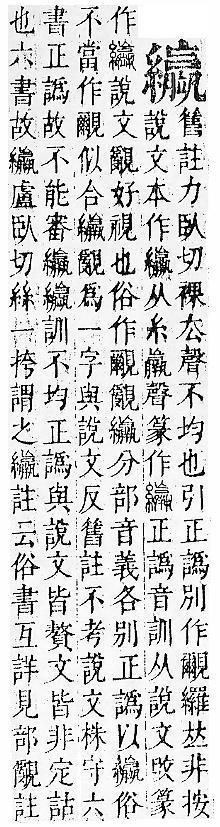 䌴
舊註力臥切裸去聲不均也引正譌別作覼纙𠀤非按
說文本作䌴从糸羸聲篆作䌴正譌音訓从說文改篆
作䌴說文覶好視也俗作覼覶䌴分部音義各別正譌以䌴俗
不當作覼似合䌴覶爲一字與說文反舊註不考說文株守六
書正譌故不能審䌴䌴訓不均正譌與說文皆贅文皆非定詁
也六書故䌴盧臥切絲一挎謂之䌴註云俗書互詳見部覶註